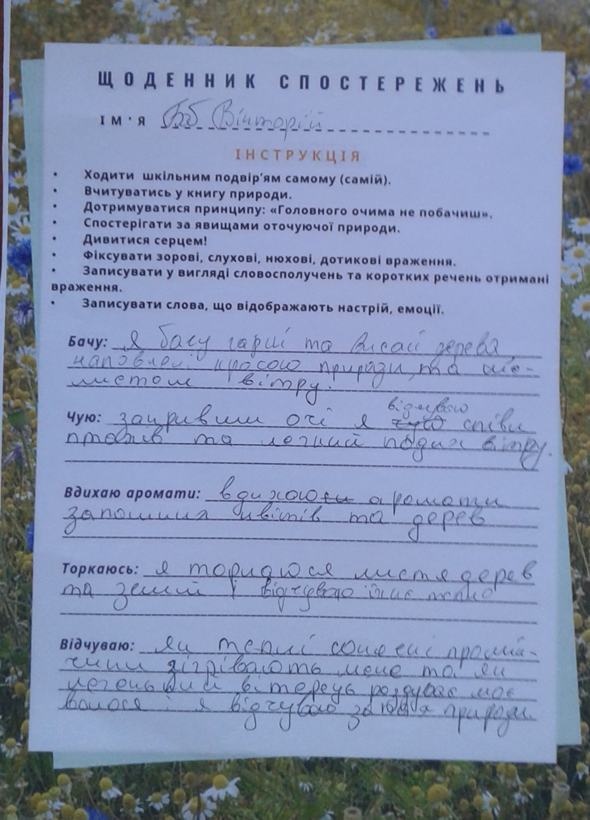 ЩОДЕННИК СПОСТЕРЕЖЕНЬ
ІМ'Я Бб Вікторій
ІНСТРУКЦІЯ
• Ходити шкільним подвір'ям самому (самій).
• Вчитуватись у книгу природи.
• Дотримуватися принципу: «Головного очима не побачиш».
• Спостерігати за явищами оточуючої природи.
• Дивитися серцем!
• Фіксувати зорові, слухові, нюхові, дотикові враження.
• Записувати у вигляді словосполучень та коротких речень отримані
враження.
• Записувати слова, що відображають настрій, емоції.
Бачу: я бачу гарні та високі дерева
наповнені красою природи, та ше-
листом вітру.
відчуваю
Чую: закривши очі я чую співи
птахів та легкий подих вітру.
Вдихаю аромати: вдихаю аромати
запашних квітів та дерев
Торкаюсь: я торкаюся листя дерев
та землі і відчуваю їхнє тепло
Відчуваю: Як теплі сонячні промін-
чики зігрівають мене та як
легенький вітерець роздуває моє
волосся і я відчуваю запах природи